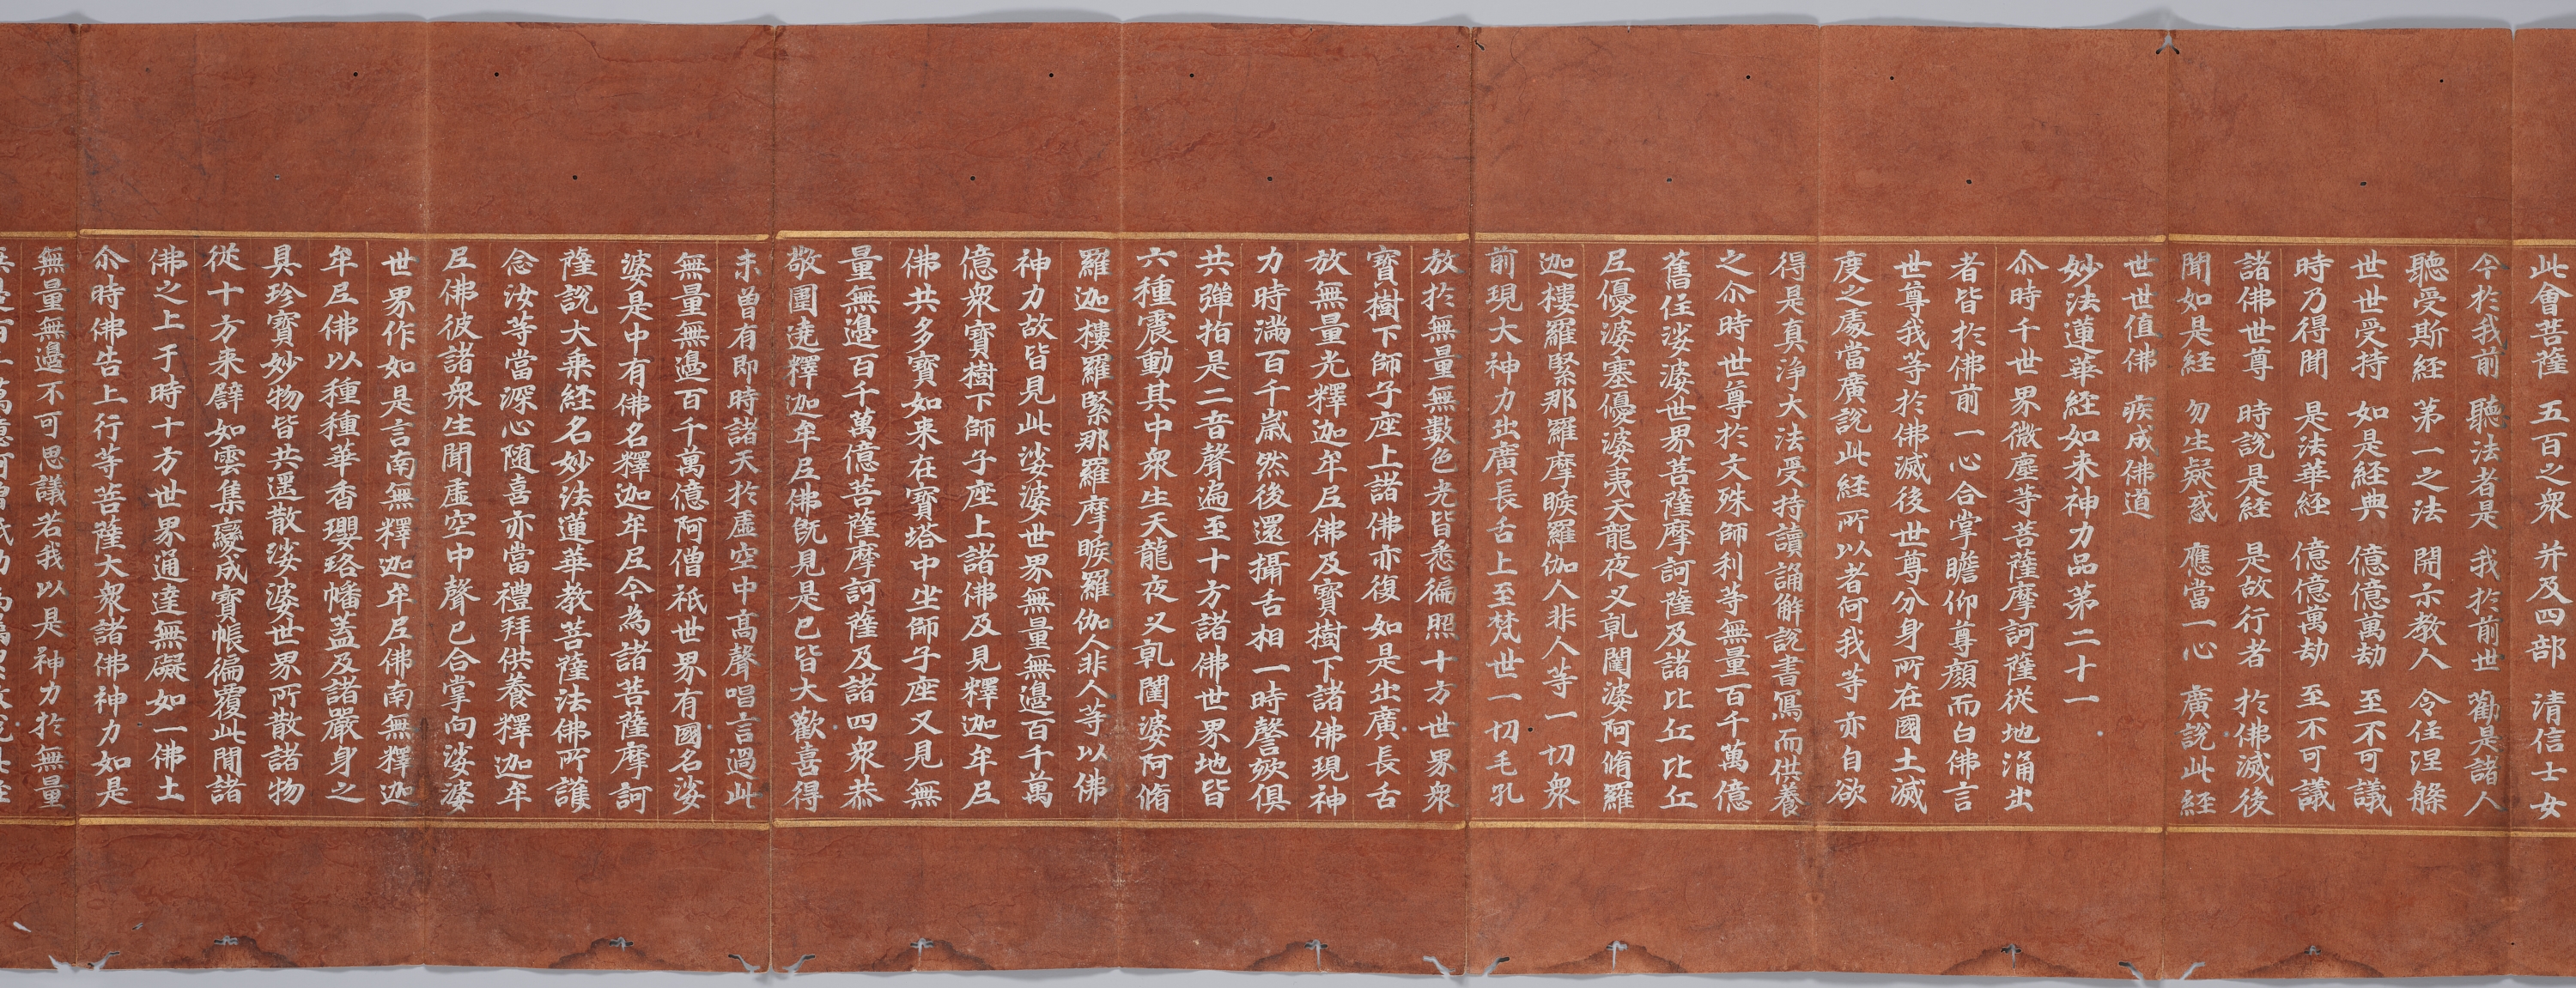 此會菩薩 五百之衆 并及四部 清信士女
今於我前 聽法者是 我於前世 勸是諸人
聽受斯經 第一之法 開示教人 令住涅槃
世世受持 如是經典 億億萬劫 至不可議
時乃得聞 是法華經 億億萬劫 至不可議
諸佛世尊 時說是經 是故行者 於佛滅後
聞如是經 勿生疑惑 應當一心 廣說此經
世世值佛 疾成佛道
妙法蓮華經如来神力品第二十一
尒時千世界微塵等菩薩摩訶薩從地涌出
者皆於佛前一心合掌瞻仰尊顔而白佛言
世尊我等於佛滅後世尊分身所在國土滅
度之處當廣說此経所以者何我等亦自欲
得是真淨大法受持讀誦解說書寫而供養
之尒時世尊於文殊師利等無量百千萬億
舊住娑婆世界菩薩摩訶薩及諸比丘比丘
尼優婆塞優婆夷天龍夜叉乹闥婆阿脩羅
迦樓羅緊那羅摩睺羅伽人非人等一切衆
前現大神力出廣長舌上至梵世一切毛孔
放於無量無數色光皆悉徧照十方世界衆
寶樹下師子座上諸佛亦復如是出廣長舌
放無量光釋迦牟尼佛及寶樹下諸佛現神
力時滿百千歲然後還攝舌相一時謦欬俱
共彈指是二音聲遍至十方諸佛世界地皆
六種震動其中衆生天龍夜叉乹闥婆阿脩
羅迦樓羅緊那羅摩睺羅伽人非人等以佛
神力故皆見此娑婆世界無量無邊百千萬
億衆寶樹下師子座上諸佛及見釋迦牟尼
佛共多寶如来在寶塔中坐師子座又見無
量無邊百千萬億菩薩摩訶薩及諸四衆恭
敬圍遶釋迦牟尼佛旣見是已皆大歡喜得
未曾有即時諸天於虛空中高聲唱言過此
無量無邊百千萬億阿僧祇世界有國名娑
婆是中有佛名釋迦牟尼今為諸菩薩摩訶
薩說大乗経名妙法蓮華教菩薩法佛所護
念汝等當深心随喜亦當禮拜供養釋迦牟
尼佛彼諸衆生聞虛空中聲已合掌向娑婆
世界作如是言南無釋迦牟尼佛南無釋迦
牟尼佛以種種華香瓔珞幡蓋及諸嚴身之
具珍寶妙物皆共遥散娑婆世界所散諸物
從十方来譬如雲集變成寶帳徧覆此間諸
佛之上于時十方世界通達無礙如一佛土
尒時佛告上行等菩薩大衆諸佛神力如是
無量無邊不可思議若我以是神力於無量